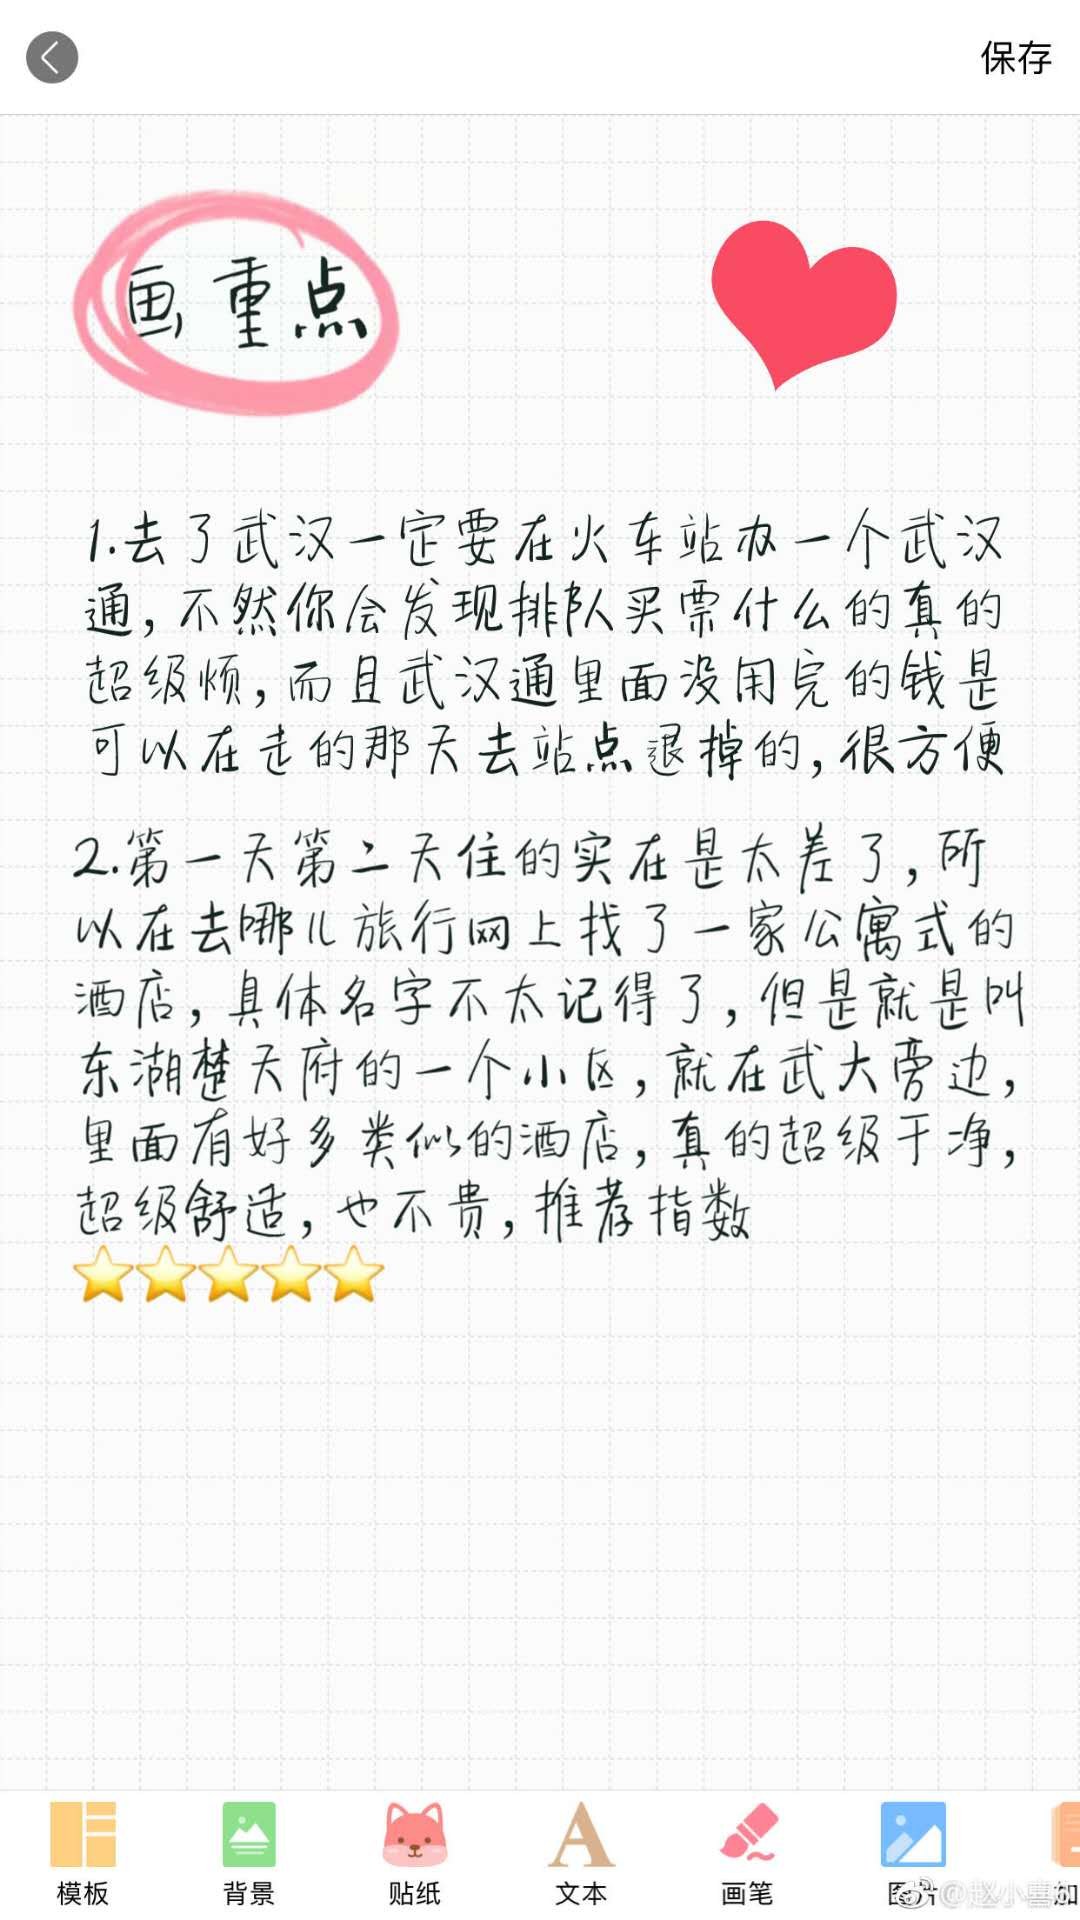 保存
画重点
1.去了武汉一定要在火车站办一个武汉
通,不然你会发现排队买票什么的真的
超级烦,而且武汉通里面没用完的钱是
可以在走的那天去站点退掉的,很方便
2.第一天第二天住的实在是太差了,所
以在去哪儿旅行网上找了一家公寓式的
酒店,具体名字不太记得了,但是就是叫
东湖楚天府的一个小区,就在武大旁边,
里面有好多类似的酒店,真的超级干净,
超级舒适,也不贵,推荐指数
⭐⭐⭐⭐⭐
模板 背景 贴纸 文本 画笔 图片 加
@赵小喜